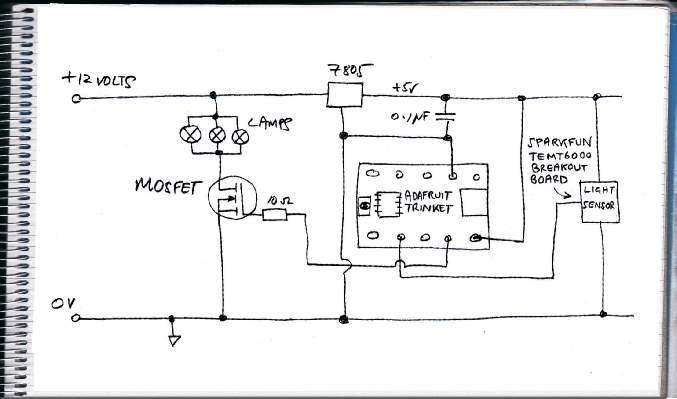 7805
+12 VOLTS
+5V
0.1µF
LAMPS
SPARKFUN
TEMT6000
BREAKOUT
BOARD
MOSFET
10Ω
ADAFRUIT
TRINKET
LIGHT
SENSOR
0V